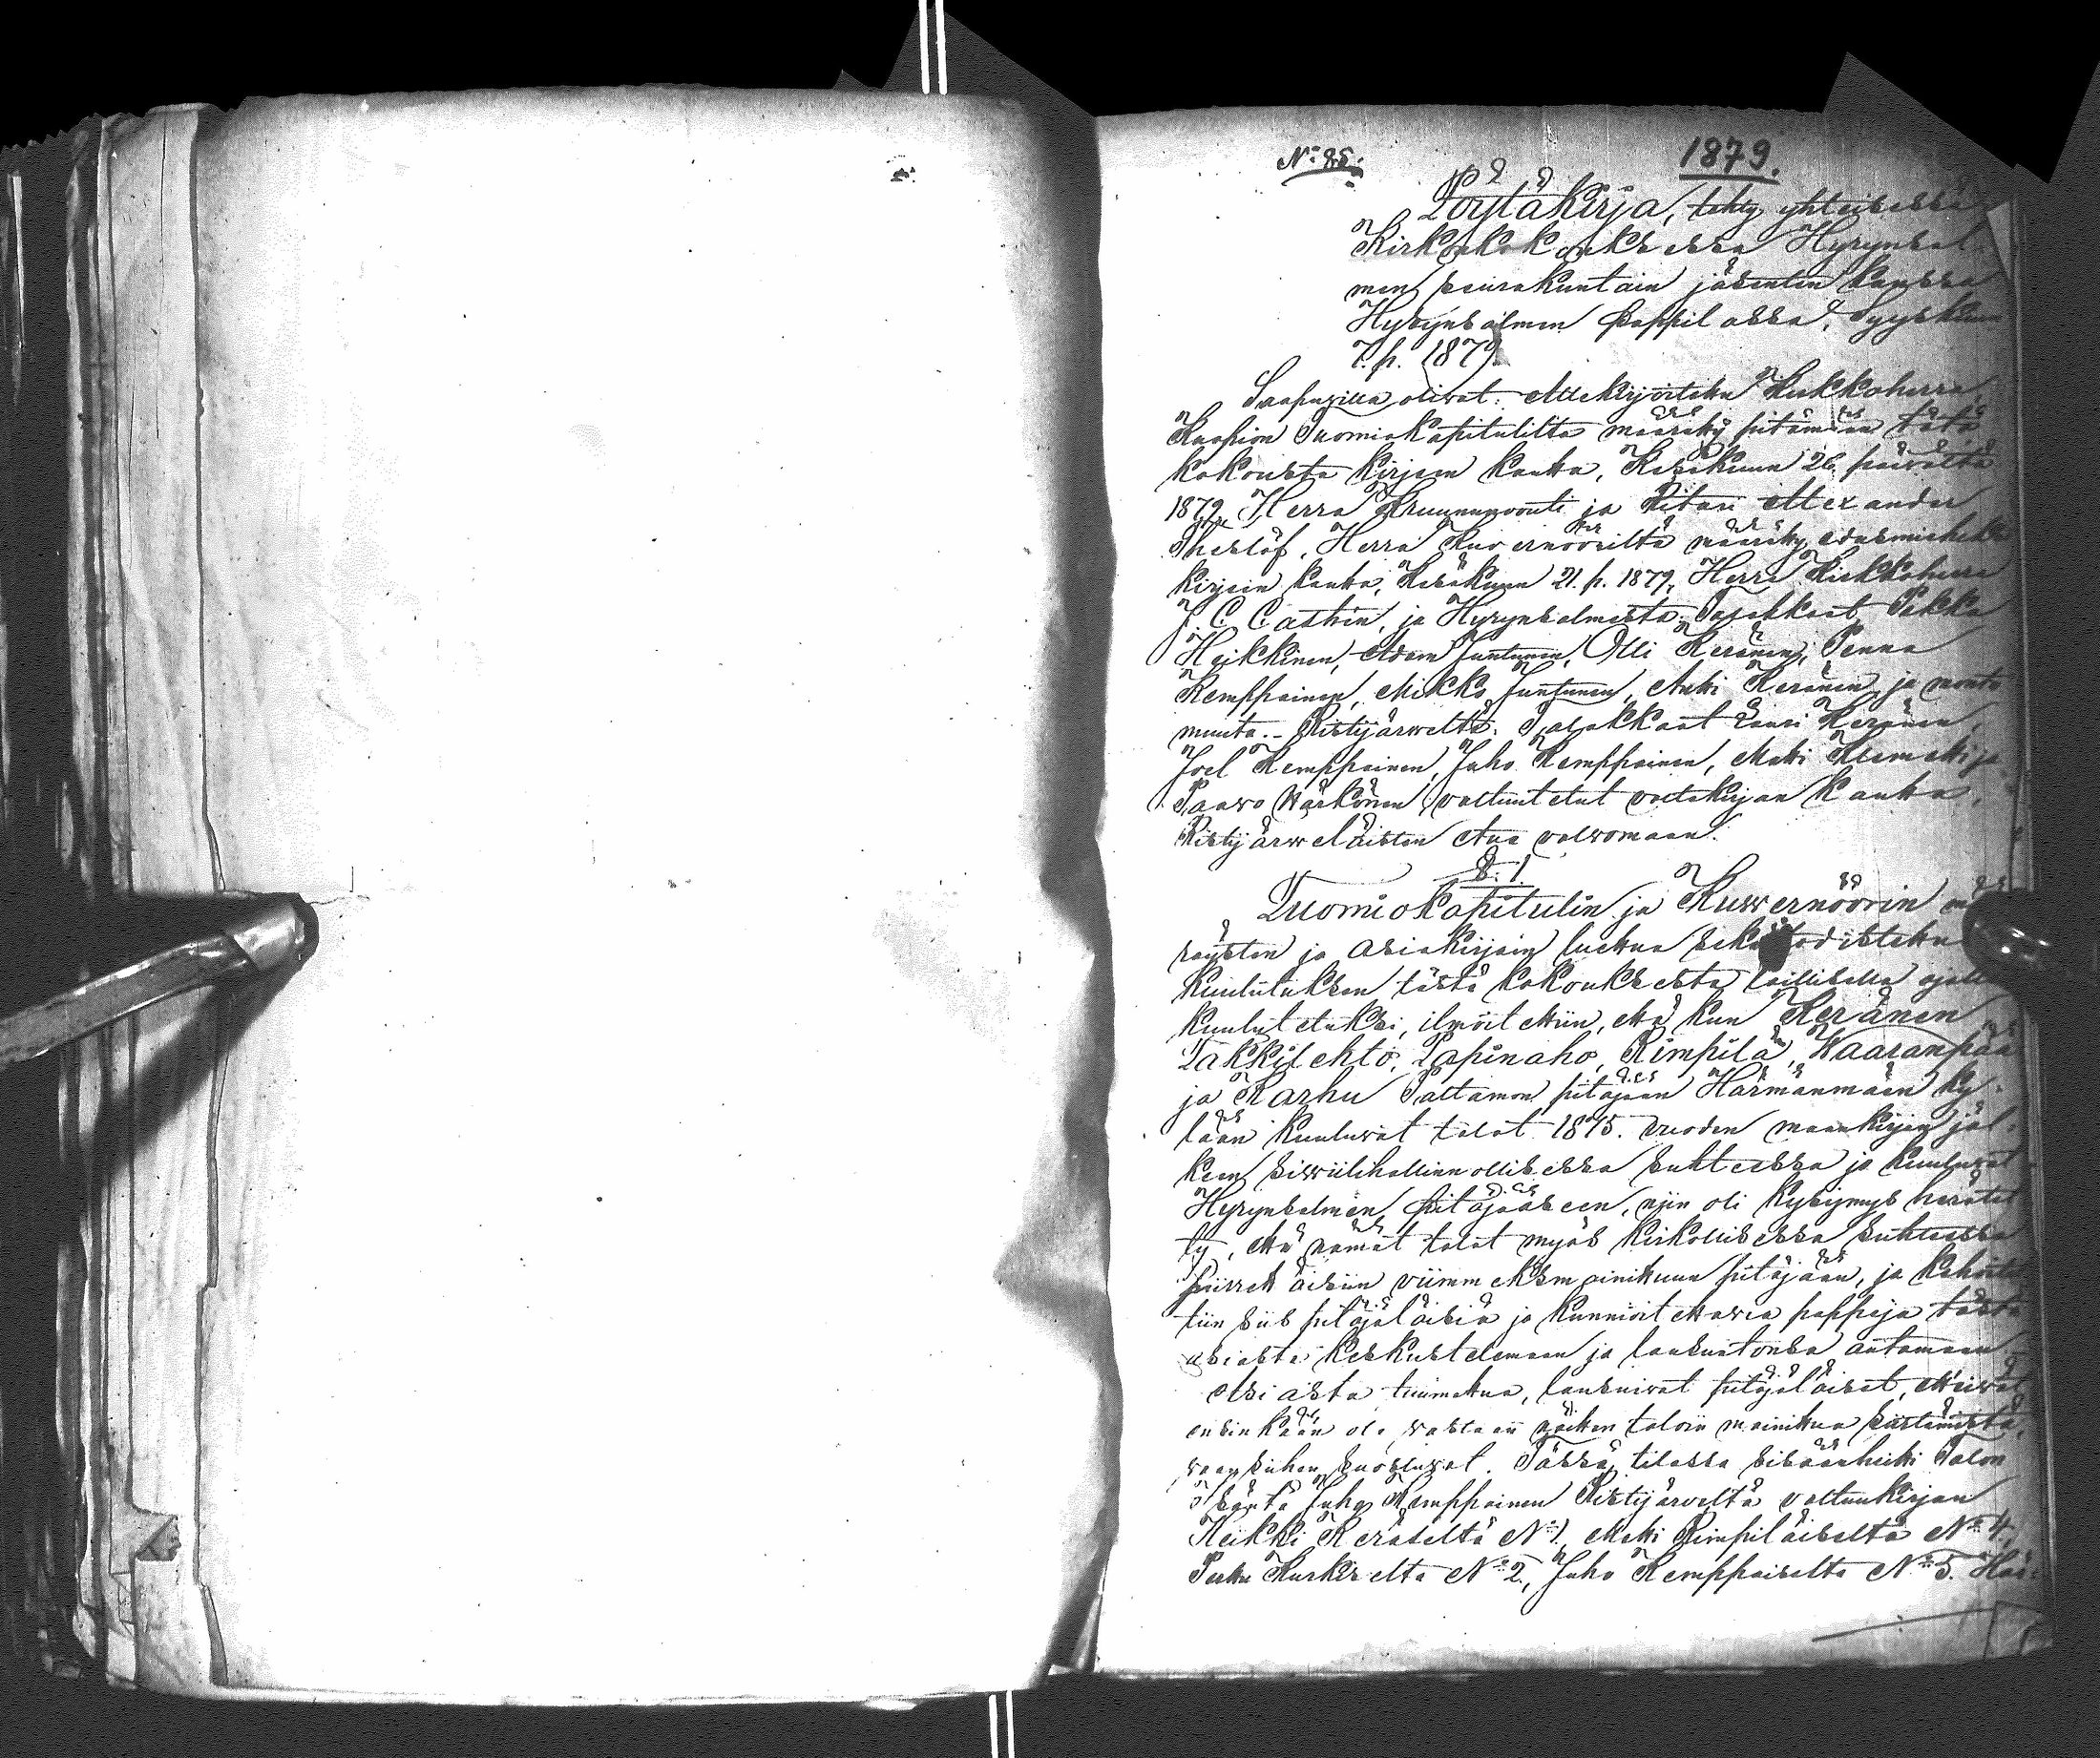 No 85.
1879.
Pöytäkirja, tehty yhteisessä
Kirkonkokouksessa Hyrynsal
men seurakuntain jäsenten kanssa
Hyrynsalmen Pappilassa, Syyskuun
7. p. 1879.
Saapuvilla olivat: Allekirjoitettu Kirkkoherra,
Kuopion Tuomiokapitulilta määrätty pitämään tätä
kokousta kirjeen kautta, Kesäkuun 26 päivältä
1879, Herra Kruununvouti ja Ritari Alexander
Theslöf, Herra Kuvernööriltä määrätty edusmieheksi
kirjein kautta, Kesäkuun 21. p. 1879, Herra Kirkkoherra
J. C. Castrin, ja Hyrynsalmesta: Talokkaat Pekka
Heikkinen, Adam Juntunen, Olli Keränen, Penna
Kemppainen, Mikko Juntunen, Antti Keränen ja monta
muuta. - Ristijärweltä: Talokkaat Lauri Keränen,
Joel Kemppainen, Juho Kemppainen, Matti Klemetti ja
Paavo Härkönen valtuutetut valtakirjan kautta,
Ristijärweläisten etua valvomaan.
§. 1.
Tuomiokapitulin ja Kuvvernöörin mä
räysten ja asiakirjain luettua sekä todistettu
kuulutuksen tästä kokouksesta laillisella ajalla
kuulutetuksi, ilmoitettiin, että kun Keränen
Takkilehto, Lapinaho, Rimpilä, Waaranpää
ja Karhu Paltamon pitäjään Härmänmäen ky-
lään kuuluvat talot 1875. vuoden maankirjan jäl-
keen siwiilihallinnollisessa suhteessa jo kuuluvat
Hyrynsalmen pitäjääseen, niin oli kysymys herätet
ty, että nämät talot myös kirkollisessa suhteessa
siirrettäisiin viimmeksmainittuun pitäjään, ja kehoitet
tiin siis pitäjäläisiä ja kunnioitettavia pappeja tästä
asiasta keskustelemaan ja lausuntonsa antamaan.
Asiasta tuumattua, lausuivat pitäjäläiset, etteivät
ensinkään ole vastaan näitten taloin mainittua siirtämistä,
vaan siihen suostuvat. Tässä tilassa sisäänhetti Talon
Isäntä Juho Kemppainen Ristijärveltä valtuukirjan
Heikki Keräseltä No 1, Matti Rimpiläiseltä No 4,
Pertti Kurkiselta No 2, Juho Kemppaiselta No 5. Här-